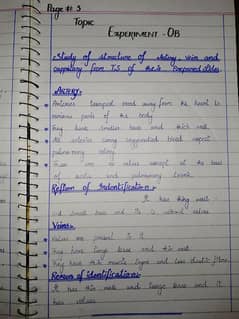 Page #: 3
Topic
EXPERIMENT - 08
Study of structure of Artery, vein and
capillary from T.S of their Permanent slides.
ARTERY:-
Arteries transport blood away from the heart to
various parts of the body.
They have smaller lumen and thick wall.
All arteries carry oxygenated blood except
pulmonary artery.
There are no valves except at the base
of aortic and pulmonary trunk.
Reason of Indentification:-
It has thick wall
and small lumen and there is absent valves.
Veins:-
Valves are present in it.
They have large lumen and thin wall.
They have thin muscle layer and less elastic fibres.
Reason of identification:-
It has thin walls and large lumen and it
has valves.